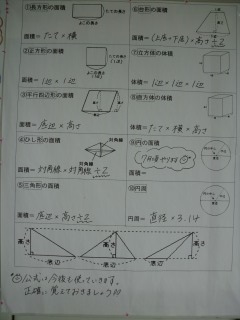 ①長方形の面積
たての長さ
よこの長さ
面積＝たて×横
②正方形の面積
よこの長さ
(1辺)
面積＝1辺×1辺
③平行四辺形の面積
高さ
底辺
面積＝底辺×高さ
④ひし形の面積
対角線
面積＝対角線×対角線÷2
⑤三角形の面積
面積＝底辺×高さ÷2
⑥台形の面積
面積＝(上底+下底)×高さ÷2
⑦立方体の体積
体積＝1辺×1辺×1辺
⑧直方体の体積
体積＝たて×横×高さ
⑨円の面積
面積＝
⑩円周
円周＝直径×3.14
高さ
高さ
高さ
底辺
底辺
底辺
公式は今後も使っていきます。
正確に覚えておきましょう!!